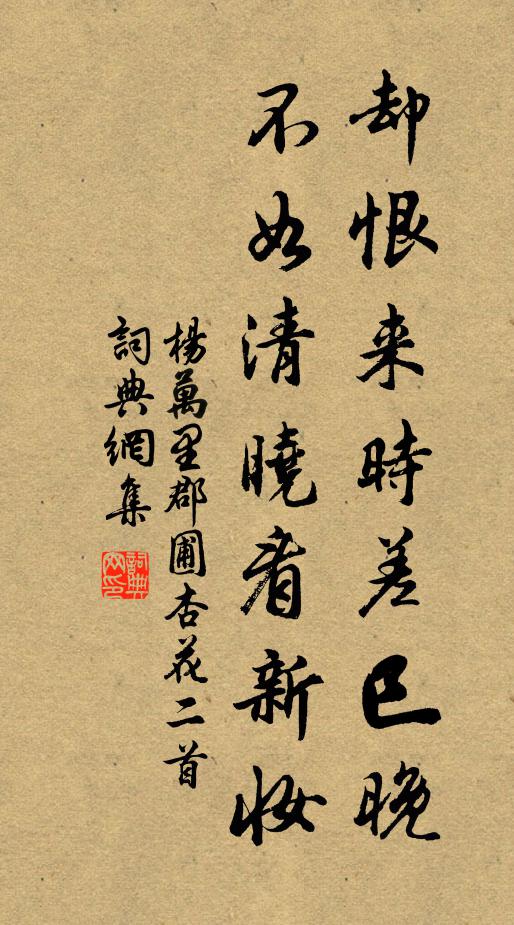 却恨来時差已晚
不如清曉看新妝
楊萬里郡圃杏花二首
詞典網集
詞典
网印